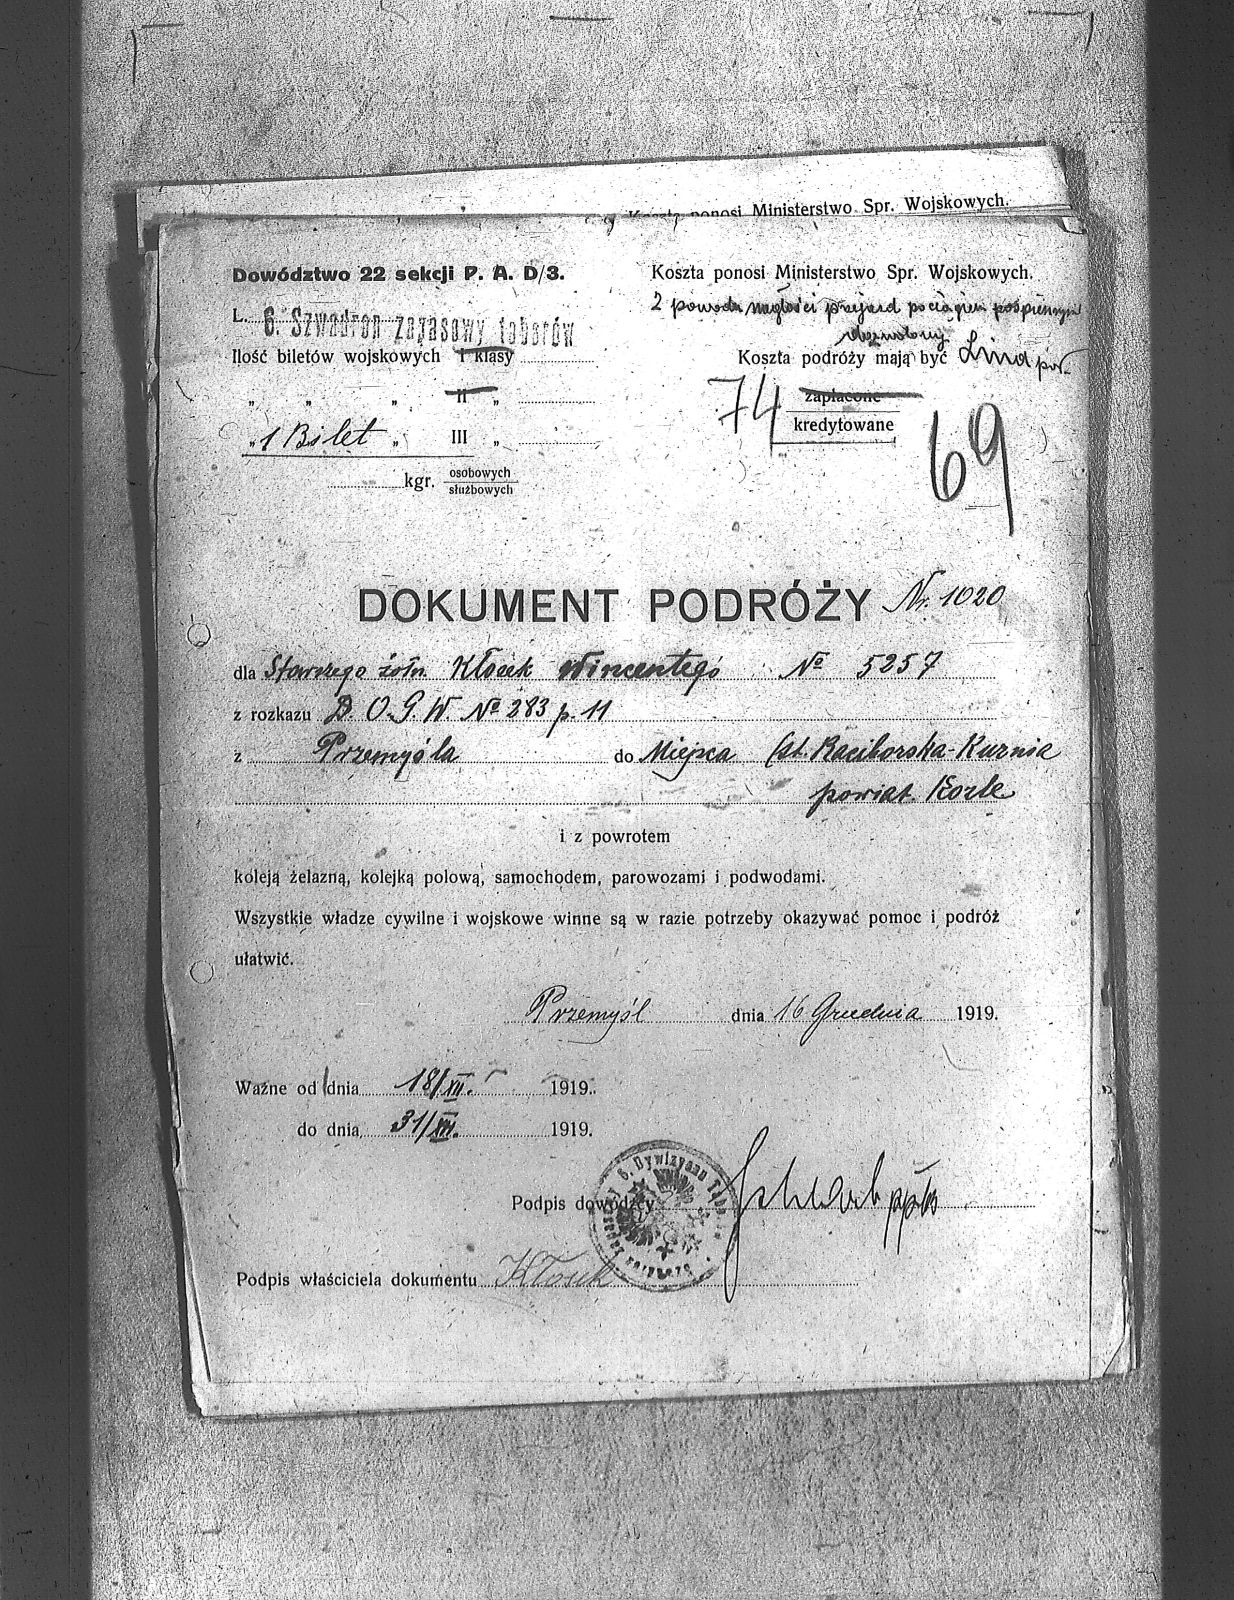 Koszta ponosi Ministerstwo Spr. Wojskowych.
Dowództwo 22 sekcji P. A. D/3.
Koszta ponosi Ministerstwo Spr. Wojskowych.
L. 6. Szwadron zapasowy taborów
z powodu nagłości przejazd pociągiem pośpiesznym
dozwolony
Ilość biletów wojskowych I klasy
Koszta podróży mają być
" " " II "
zapłacone
74
kredytowane
69
" 1 Bilet " III "
kgr. osobowych
służbowych
DOKUMENT PODRÓŻY Nr. 1020
dla Starszego żołn. Kłosek Wincentego No 5257
z rozkazu D. O. G. W. No 283 p. 11
z Przemyśla do Miejsca (st. Raciborska-Kuznia
powiat. Kozle
i z powrotem
koleją żelazną, kolejką polową, samochodem, parowozami i podwodami.
Wszystkie władze cywilne i wojskowe winne są w razie potrzeby okazywać pomoc i podróż
ułatwić.
Przemyśl dnia 16 Grudnia 1919.
Ważne od dnia 18/XII. 1919.
do dnia 31/XII. 1919.
6. Dywizyonu
Podpis dowódcy
Podpis właściciela dokumentu Kłosek